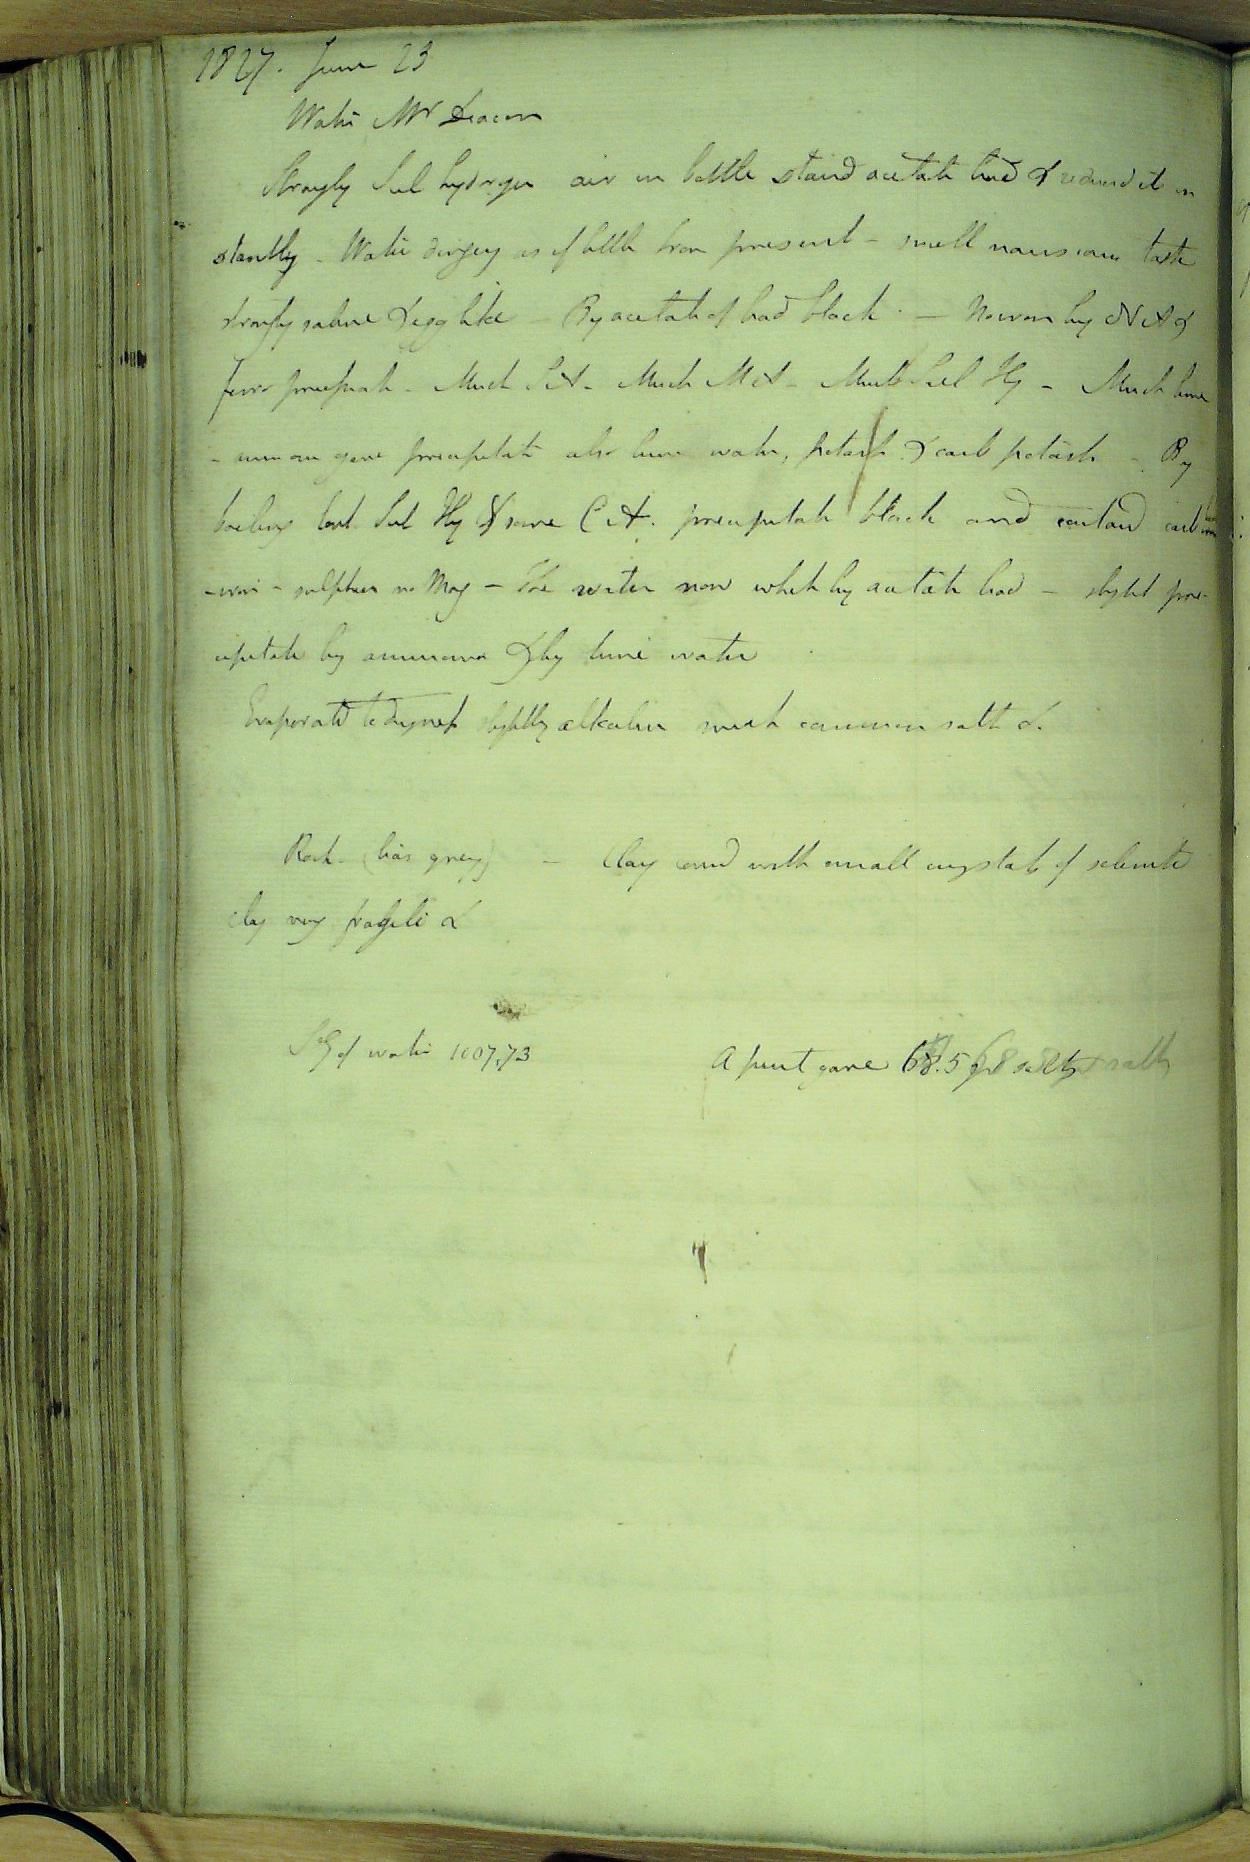 1827. June 23
Water Mr Deacon
Strongly Sul hydrogen air in bottle staind acetate lead & reduced it in
stantly - Water dingy as if little Iron present - smell nauseous taste
strongly saline & egg like - By acetate of lead black - No iron by N A &
ferro prussiate - Much S A - Much M A - Much Sul Hy - Much lime
- ammon gave precipitate also lime water, potash & carb potash - By
boiling lost Sul Hy & some C A. precipitate black and containd carb lime
- iron - sulphur no Mag - The water now white by acetate lead - slight pre-
cipitate by ammonia & by lime water
Evaporated to dryness slightly alkaline much common salt &.
Rock (lias grey) - Clay covd with small crystals of selenite
clay very fragile &
S G of water 1007,73 A pint gave 68.5 salts